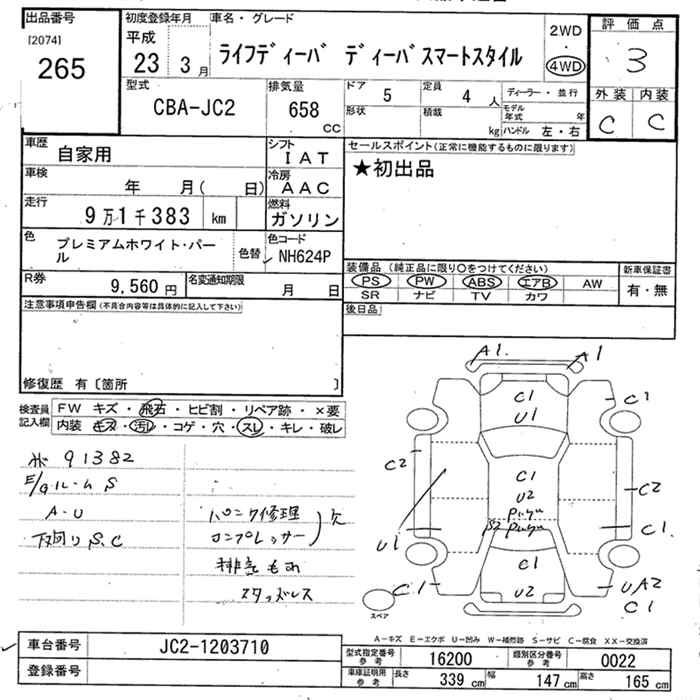 出品番号
[2074]
265
初度登録年月
平成
23 3月
車名・グレード
ライフディーバ ディーバスマートスタイル
2WD
・
4WD
評価点
3
外装 内装
C C
型式
CBA-JC2
排気量
658
CC
ドア
5
定員
4 人
形状
積載
kg
ディーラー・並行
モデル年式 年
ハンドル 左・右
車歴
自家用
シフト
IAT
車検
年 月( 日)
冷房
AAC
走行
9万1千383 km
燃料
ガソリン
色
プレミアムホワイト・パール
色替
色コード
NH624P
R券
9,560円
名変通知期限
月 日
セールスポイント(正常に機能するものに限ります)
★初出品
装備品(純正品に限り○をつけてください)
PS PW ABS エアB AW
SR ナビ TV カワ
新車保証書
有・無
後日品
注意事項申告欄(不具合内容等は具体的に記入して下さい)
修復歴 有〔箇所 〕
検査員記入欄
FW キズ・飛石・ヒビ割・リペア跡・×要
内装 キズ・汚れ・コゲ・穴・スレ・キレ・破レ
91382
E/gルームS
A-U
下回りS.C
パンク修理
コンプレッサー
欠
排気もれ
スタッドレス
A1. A1
C1
U1
C1
C2
C1
U2
C2
U1
C1.
C1
C1
U2
UA2
C1
スペア
A-キズ E-エクボ U-凹み W-補修跡 S-サビ C-腐食 XX-交換済
車台番号
JC2-1203710
登録番号
型式指定番号
参考
16200
類別区分番号
参考
0022
車庫証明用
参考
長さ 339 cm 幅 147 cm 高さ 165 cm